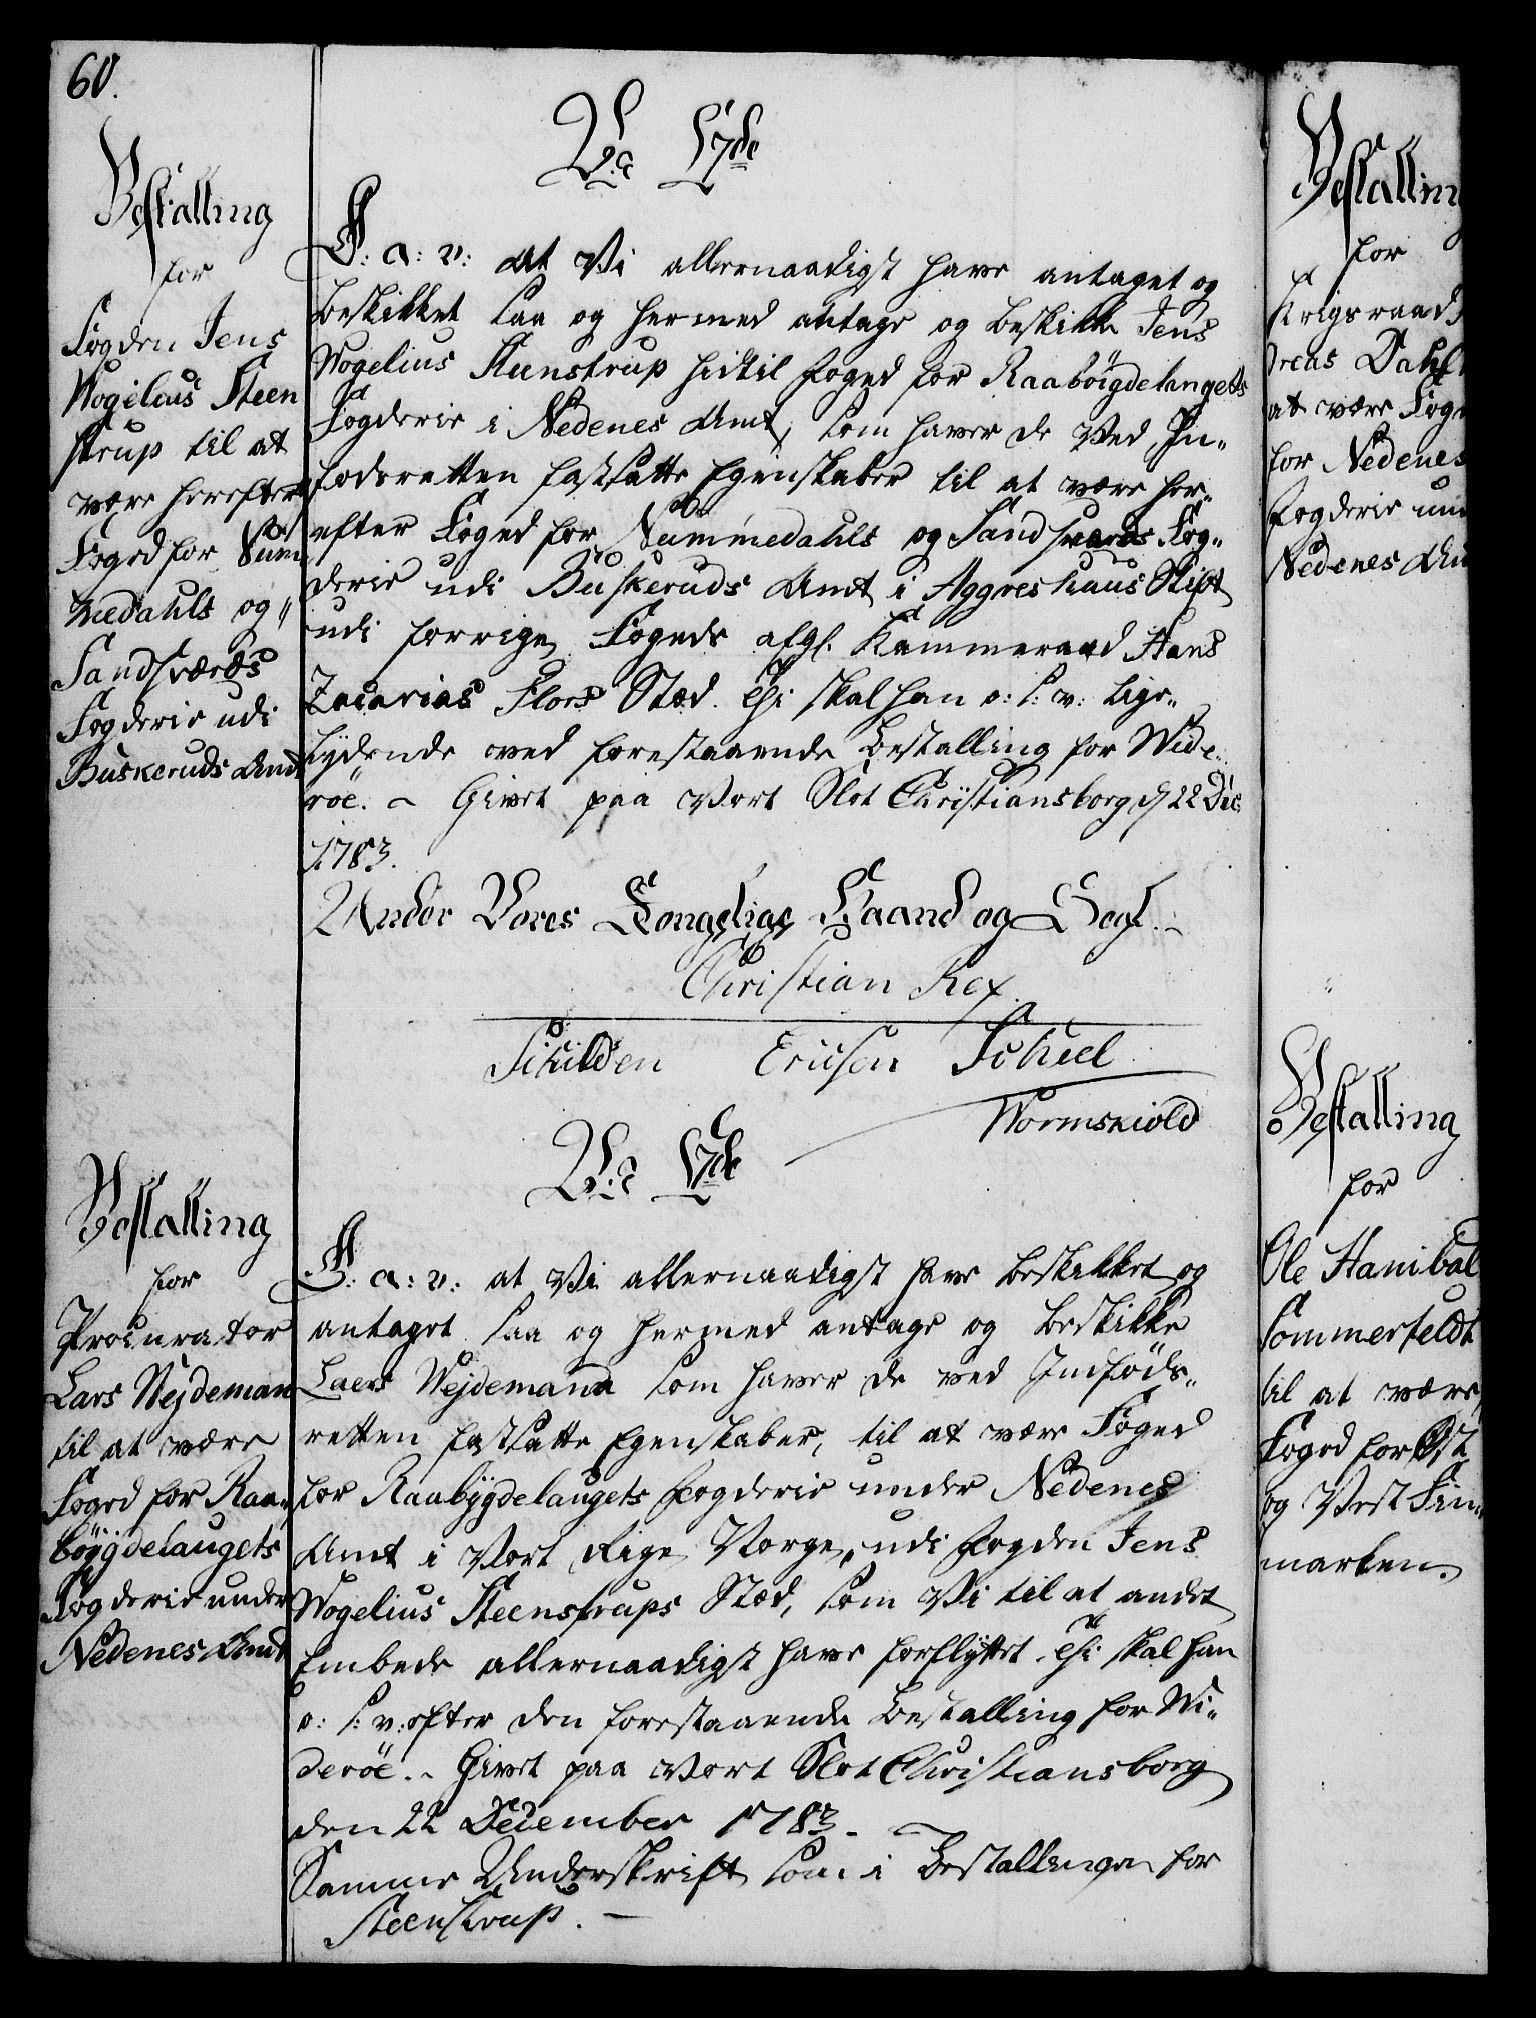 60.
Bestalling
for
Fogden Jens
Wogelius Steen
strup til at
være herefter
Foged for Num
medahls og
Sandsværds
Fogderie udi
Buskeruds Amt
V: a
G: a: v: At Vi allernaadigst have antaget og
beskikket saa og hermed antage og beskikke Jens
Wogelius Stenstrup hidtil Foged for Raaböigdelaugets
Fogderie i Nedenes Amt, som haver de ved In-
føderetten fastsatte Egenskaber til at være her-
efter Foged for Nummedahls og Sandsværds Fog-
derie udi Buskeruds Amt i Aggershuus Stift
udi forrige Fogeds afg. Kammeraad Hans
Zacarias Flors Stæd. Thi skal han o: s: v: lige-
lydende med forestaaende Bestalling for Wide-
röe. Givet paa Vort Slot Christiansborg d 22 Dec
1783.
Under Vores Kongelige Haand og Segl.
Christian Rex.
Schilden Ericson Scheel
Wormskiold
Bestalling
for
Procurator
Lars Wejdeman
til at være
Foged for Raa-
böygdelaugets
Fogderie under
Nedenes Amt
V: a
G: a: v: at Vi allernaadigst have beskikket og
antaget saa og hermed antage og beskikke
Laers Wejdemann som haver de ved Indføds-
retten fastsatte Egenskaber, til at være Foged
for Raabygdelaugets Fogderie under Nedenes
Amt i Vort Rige Norge, udi Fogden Jens
Wogelius Steenstrups Stæd, som Vi til at andet
Embede allernaadigst have forflyttet. Thi skal han
o: s: v: efter den forestaaende Bestalling for Wi-
deröe. Givet paa Vort Slot Christiansborg
den 22 December 1783.
Samme Underskrift som i Bestallingen for
Steenstrup.
Bestalling
for
Krigsraad
reas Dahl
at være Foge
for Nedenes
Fogderie un
Nedenes Am
Bestalling
for
Ole Hanibal
Sommerfeldt
til at være
Foged for Ost
og Vest Fin-
marken.